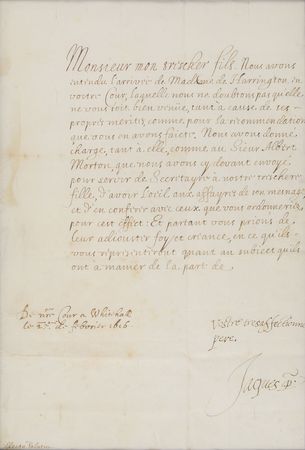 Monsieur mon trescher fils. Nous avons
entendu l'arrivée de Madame de Harrington, en
vostre Cour, laquelle nous ne doubtons pas qu'elle
ne vous soit bien venüe, tant a cause de ses
propres merits comme pour la recommendation
que vous en avons faicte. Nous avons donné
charge, tant a elle, comme au Sieur Albert
Morton que nous avons cy devant envoyé
pour servir de Secretayre a nostre treschere
fille, d'avoir l'oeil aux affayres de son mesnage
et d'en conferer avec ceux que vous ordonnerez
pour cest effect: Et partant vous prions de
leur adjouster foy et creance, en ce qu'ils
vous representeront quant au subject qu'ils
ont a manier de la part de
De nre Cour a Whitehall
le de febvrier 1616
Vostre tresaffectionné
pere.
Jaques R.